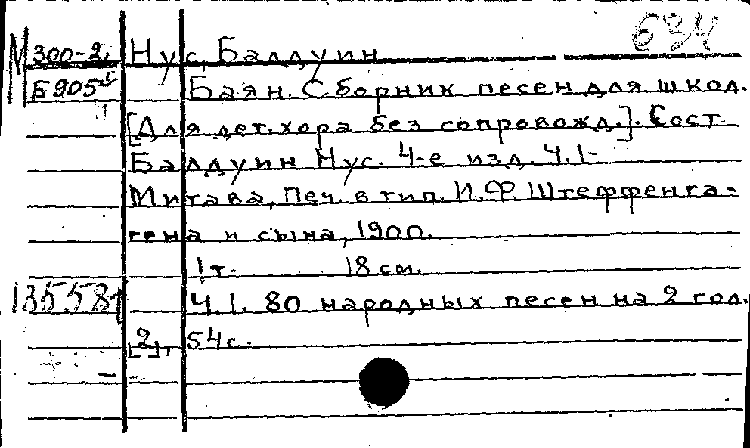 634
М 300-2 Нус, Балдуин
Б905 Баян. Сборник песен для школ.
[Для дет. хора без сопровожд.]. Сост.
Балдуин Нус. 4-е изд. Ч.1-
Митава, Печ. в тип. И.Ф. Штеффенга-
гена и сына, 1900.
1 т. 18 см.
Ч.1. 80 народных песен на 2 гол.
[2], 54 с.